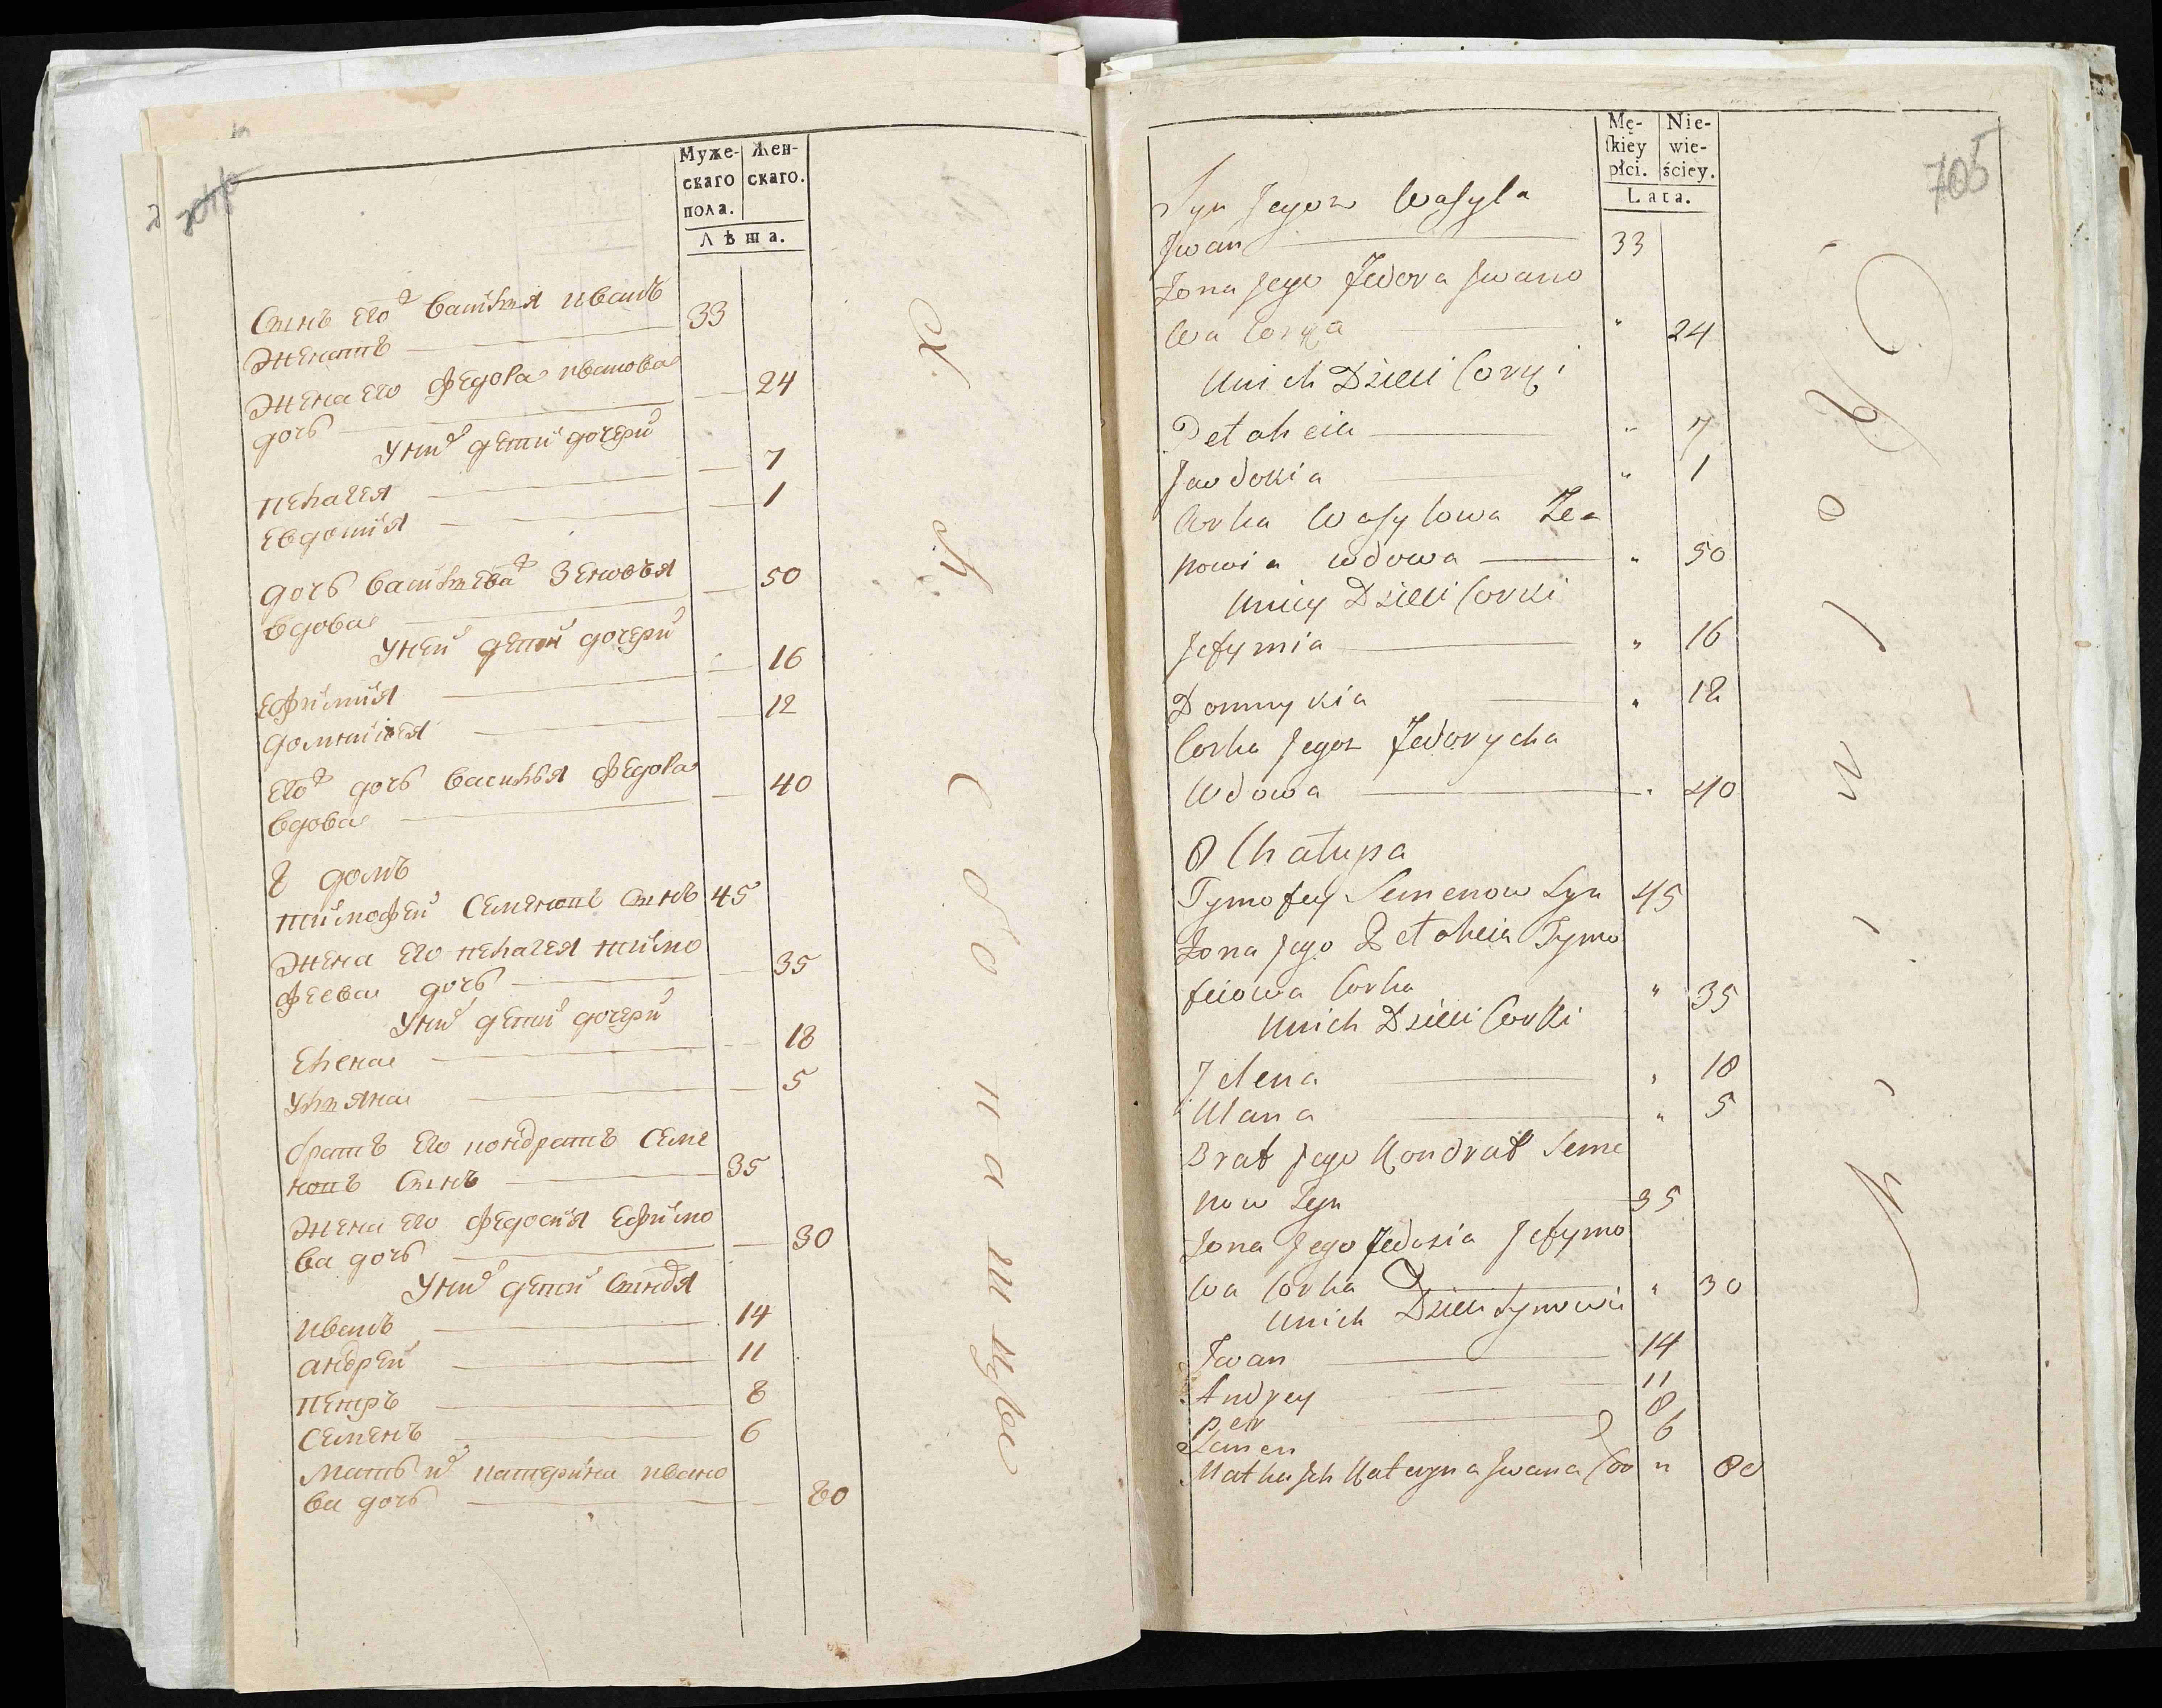 Муже-
скаго
пола.
Жен-
скаго.
Лѣта.
Сынъ его васи́лья иванъ
женатъ — 33
Жена его федора иванова
дочь — 24
У них дети дочери
пелагея — 7
Евдокия — 1
дочь васильева Зеновья
вдова — 50
У ней дети дочери
Ефимия — 16
домникия — 12
Его дочь василья федора
вдова — 40
8 домъ
тимофей Семеновъ Сынъ 45
Жена его пелагея тимо
феева дочь — 35
У них дети дочери
Елена — 18
Ульяна — 5
братъ его кондратъ Семе
новъ Сынъ — 35
Жена его федосия Ефимо
ва дочь — 30
У них дети Сыновя
иванъ — 14
андрей — 11
петръ — 8
Семенъ — 6
Мать их катерина ивано
ва дочь — 80
705
Mę-
skiey
płci.
Nie-
wie-
ściey.
Lata.
Syn Jegoz Wasyla
Jwan — 33
Zona Jego Fedora Jwano
wa Corka " 24
Unich Dzieci Corki
Pelaheia — " 7
Jawdokia " 1
Corka Wasylowa Ze-
nowia wdowa — " 50
Uniey Dzieci Corki
Jefymia — " 16
Domnykia — " 12
Corka Jegoz Fedorycha
Wdowa — " 40
8 Chałupa
Tymofey Semenow Syn 45
Zona Jego Pelaheia Tymo
feiowa Corka " 35
Unich Dzieci Corki
Jelena — " 18
Ulana — " 5
Brat Jego Kondrat Seme
now Syn — 35
Zona Jego Fedosia Jefymo
wa Corka — " 30
Unich Dzieci Synowie
Jwan — 14
Andrey — 11
Petr — 8
Semen 6
Matka Jch Kateryna Jwana Cor " 80